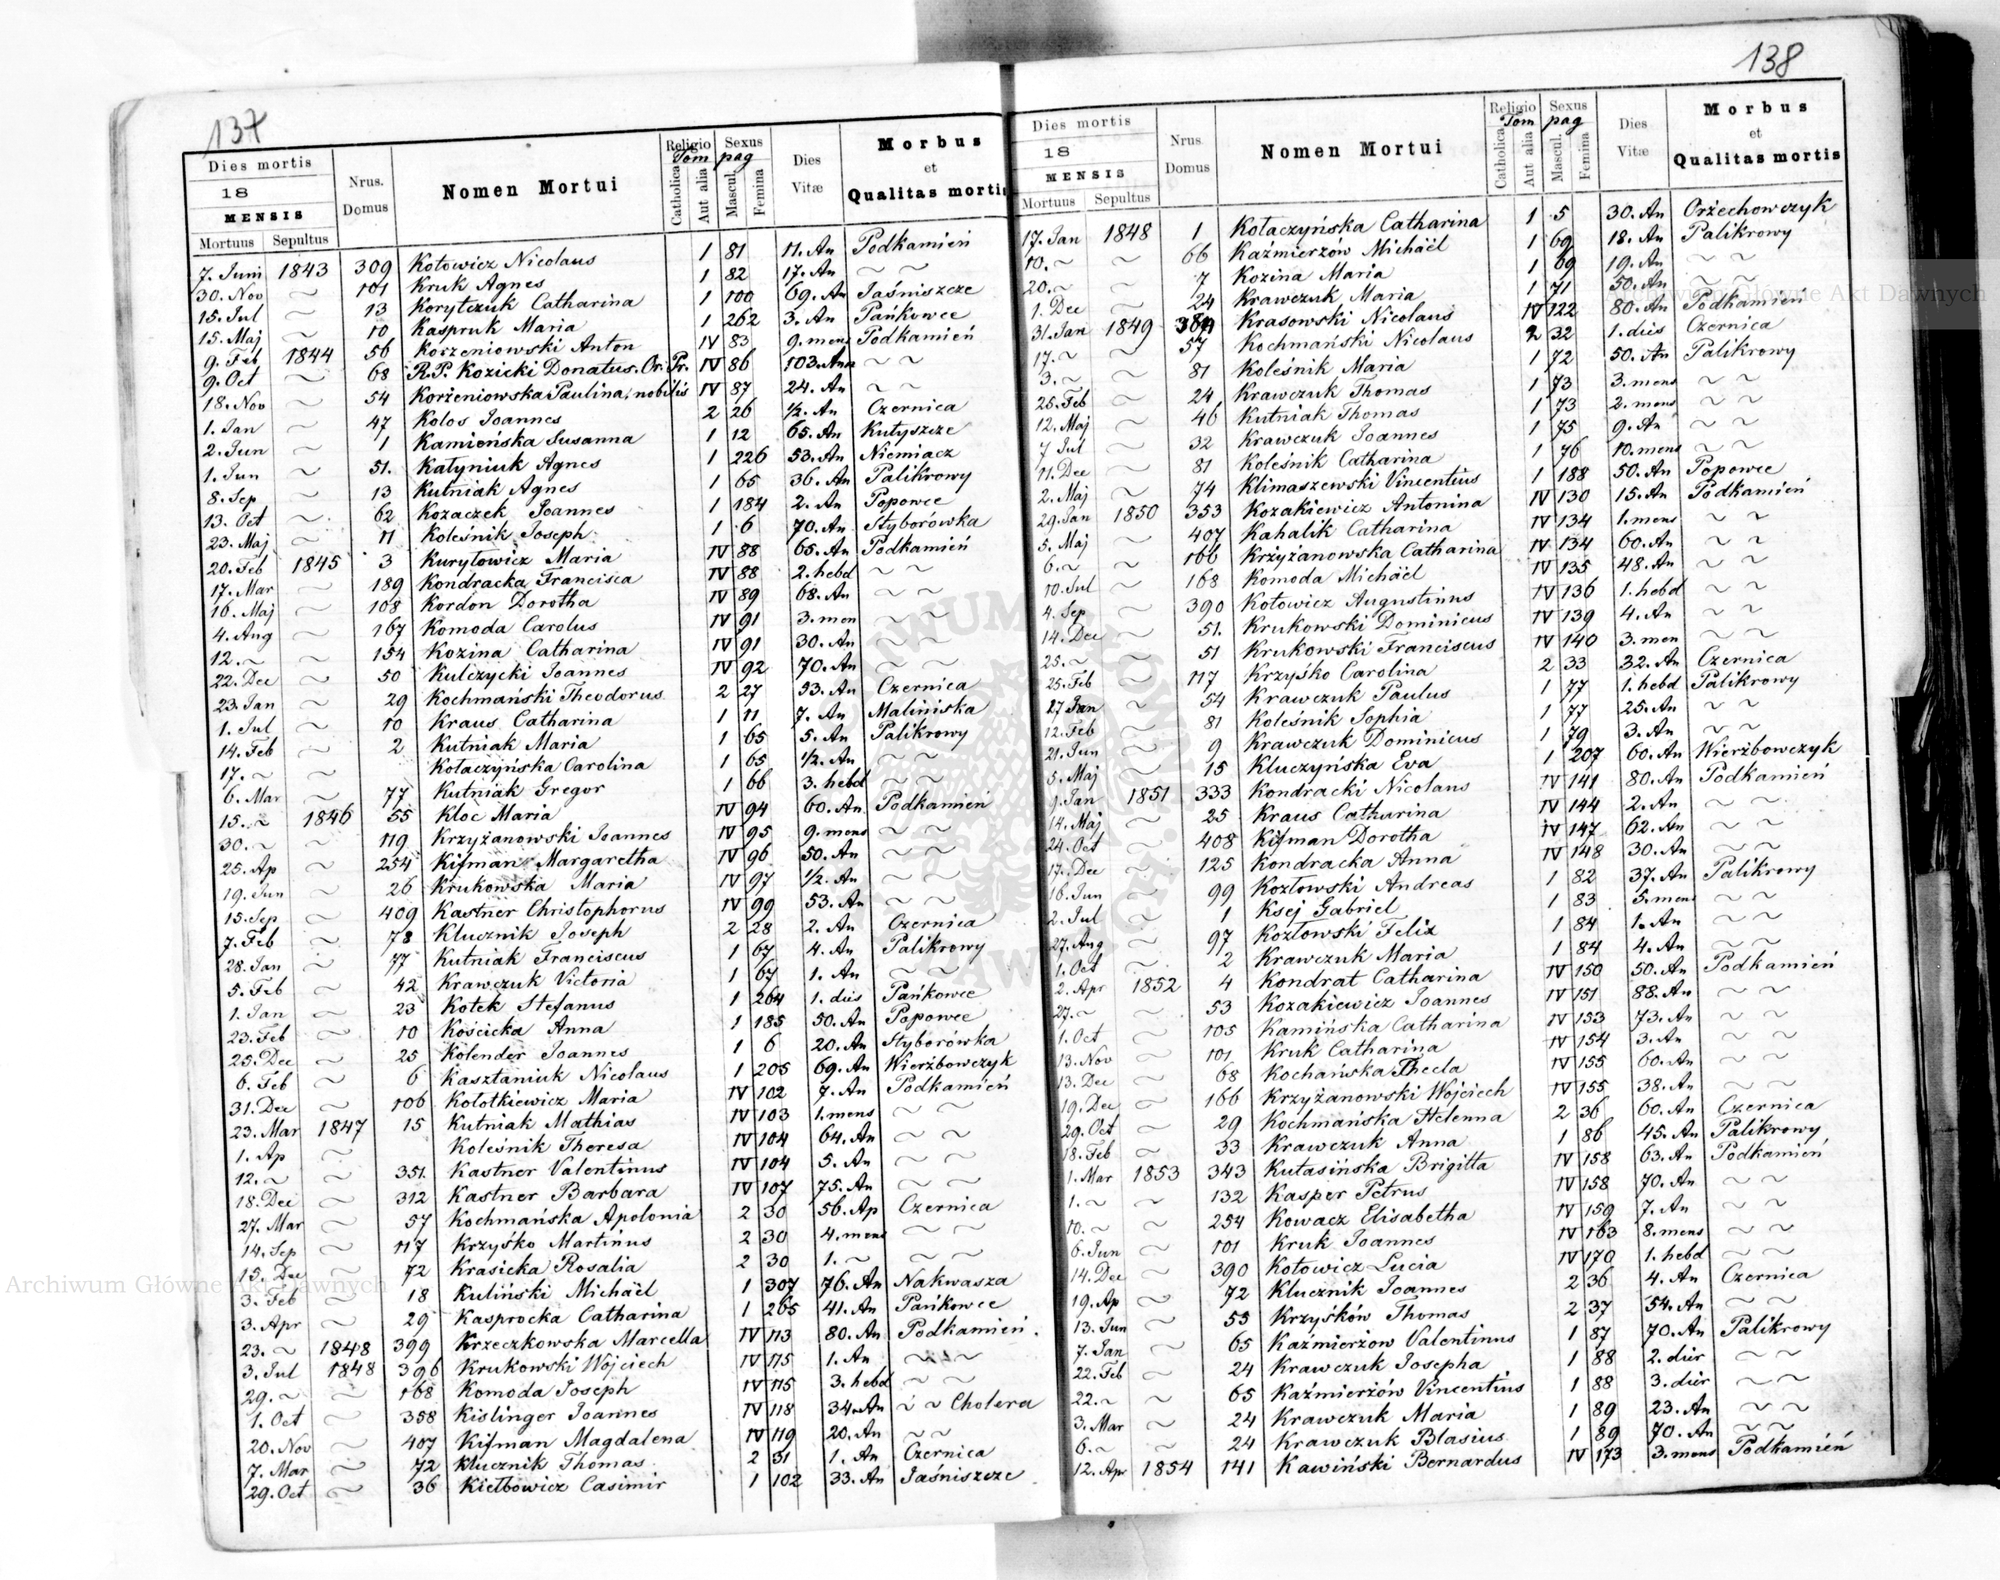 137
Dies mortis
18
MENSIS
Mortuus Sepultus
Nrus. Domus
Nomen Mortui
Religio
Catholica Aut alia
Tom pag
Sexus
Mascul. Femina
Dies Vitæ
Morbus et Qualitas mortis
7. Juni 1843 309 Kotowicz Nicolaus 1 81 11. An Podkamień
30. Nov ~ 101 Kruk Agnes 1 82 17. An ~ ~
15. Jul ~ 13 Korytczuk Catharina 1 100 69. An Jaśniszcze
15. Maj ~ 10 Kaspruk Maria 1 262 3. An Pańkowce
9. Feb 1844 56 Korzeniowski Anton IV 83 9. mens Podkamień
9. Oct ~ 68 R.P. Kozicki Donatus. Or. Pr. IV 86 103. Ann ~ ~
18. Nov ~ 54 Korżeniowska Paulina, nobilis IV 87 24. An ~ ~
1. Jan ~ 47 Kolos Joannes 2 26 ½. An Czernica
2. Jun ~ 1 Kamieńska Susanna 1 12 65. An Kutyszcze
1. Jun ~ 51. Katyniuk Agnes 1 226 53. An Niemiacz
8. Sep ~ 13 Kutniak Agnes 1 65 36. An Palikrowy
13. Oct ~ 62 Kozaczek Joannes 1 184 2. An Popowce
23. Maj ~ 11 Koleśnik Joseph 1 6 70. An Styborówka
20. Feb 1845 3 Kurytowicz Maria IV 88 65. An Podkamień
17. Mar ~ 189 Kondracka Francisca IV 88 2. hebd ~ ~
16. Maj ~ 108 Kordon Dorotha IV 89 68. An ~ ~
4. Aug ~ 167 Komoda Carolus IV 91 3. men ~ ~
12. ~ ~ 154 Kozina Catharina IV 91 30. An ~ ~
22. Dec ~ 50 Kulczycki Joannes IV 92 70. An ~ ~
23. Jan ~ 29 Kochmański Theodorus 2 27 53. An Czernica
1. Jul ~ 10 Kraus Catharina 1 11 7. An Maliniska
14. Feb ~ 2 Kutniak Maria 1 65 5. An Palikrowy
17. ~ ~ Kotaczyńska Carolina 1 65 ½. An ~ ~
6. Mar ~ 77 Kutniak Gregor 1 66 3. hebd ~ ~
15. ~ 1846 55 Kloc Maria IV 94 60. An Podkamień
30. ~ ~ 119 Krzyżanowski Joannes IV 95 9. mens ~ ~
25. Ap ~ 254 Kifman Margaretha IV 96 50. An ~ ~
19. Jun ~ 26 Krukowska Maria IV 97 ½. An ~ ~
15. Sep ~ 409 Kastner Christophorus IV 99 53. An ~ ~
7. Feb ~ 78 Klucznik Joseph 2 28 2. An Czernica
28. Jan ~ 77 Kutniak Franciscus 1 67 4. An Palikrowy
5. Feb ~ 42 Krawczuk Victoria 1 67 1. An ~ ~
1. Jan ~ 23 Kotek Stefanus 1 264 1. dies Pańkowce
23. Feb ~ 10 Kościcka Anna 1 185 50. An Popowce
25. Dec ~ 25 Kolender Joannes 1 6 20. An Styborówka
6. Feb ~ 6 Kasztaniuk Nicolaus 1 205 69. An Wierżbowczyk
31. Dec ~ 106 Kototkiewicz Maria IV 102 7. An Podkamień
23. Mar 1847 15 Kutniak Mathias IV 103 1. mens ~ ~
1. Ap ~ Koleśnik Theresa IV 104 64. An ~ ~
12. ~ ~ 351. Kastner Valentinus IV 104 5. An ~ ~
18. Dec ~ 312 Kastner Barbara IV 107 75. An ~ ~
27. Mar ~ 57 Kochmańska Apolonia 2 30 56. Ap Czernica
14. Sep ~ 117 Krzyśko Martinus 2 30 4. mens ~ ~
15. Dec ~ 72 Krasicka Rosalia 2 30 1. ~ ~ ~
3. Feb ~ 18 Kuliński Michäel 1 307 76. An Nakwasza
3. Apr ~ 29 Kasprocka Catharina 1 265 41. An Pańkowce
23. ~ 1848 399 Krzeczkowska Marcella IV 113 80. An Podkamień.
3. Jul 1848 396 Krukowski Wojciech IV 115 1. An ~ ~
29. ~ ~ 168 Komoda Joseph IV 115 3. hebd ~ ~
1. Oct ~ 358 Kislinger Joannes IV 118 34. An ~ ~ Cholera
20. Nov ~ 407 Kifman Magdalena IV 119 20. An ~ ~
7. Mar ~ 72 Klucznik Thomas 2 31 1. An Czernica
29. Oct ~ 36 Kietbowicz Casimir 1 102 33. An Jaśniszcze
138
Dies mortis
18
MENSIS
Mortuus Sepultus
Nrus Domus
Nomen Mortui
Religio
Catholica Aut alia
Tom pag
Sexus
Mascul. Femina
Dies Vitæ
Morbus et Qualitas mortis
17. Jan 1848 1 Kotaczyńska Catharina 1 5 30. An Orżechowczyk
10. ~ ~ 66 Kaźmierzów Michäel 1 69 18. An Palikrowy
20. ~ ~ 7 Kozina Maria 1 69 19. An ~ ~
1. Dec ~ 24 Krawczuk Maria 1 71 50. An ~ ~
31. Jan 1849 Krasowski Nicolaus IV 122 80. An Podkamień
17. ~ ~ 57 Kochmański Nicolaus 2 32 1. dies Czernica
3. ~ ~ 81 Koleśnik Maria 1 72 50. An Palikrowy
25. Feb ~ 24 Krawczuk Thomas 1 73 3. mens ~ ~
12. Maj ~ 46 Kutniak Thomas 1 73 2. mens ~ ~
7 Jul ~ 32 Krawczuk Joannes 1 75 9. An ~ ~
11. Dec ~ 81 Koleśnik Catharina 1 76 10. mens ~ ~
2. Maj ~ 74 Klimaszewski Vincentius 1 188 50. An Popowce
29. Jan 1850 353 Kozakiewicz Antonina IV 130 15. An Podkamień
5. Maj ~ 407 Kahalik Catharina IV 134 1. mens ~ ~
6. ~ ~ 166 Krżyżanowska Catharina IV 134 60. An ~ ~
10. Jul ~ 168 Komoda Michäel IV 135 48. An ~ ~
4. Sep ~ 390 Kotowicz Augustinus IV 136 1. hebd ~ ~
14. Dec ~ 51. Krukowski Dominicus IV 139 4. An ~ ~
25. ~ ~ 51 Krukowski Franciscus IV 140 3. men ~ ~
25. Feb ~ 117 Krzyśko Carolina 2 33 32. An Czernica
27 Jan ~ 54 Krawczuk Paulus 1 77 1. hebd Palikrowy
12. Feb ~ 81 Koleśnik Sophia 1 77 25. An ~ ~
21. Jun ~ 9 Krawczuk Dominicus 1 79 3. An ~ ~
5. Maj ~ 15 Kluczyńska Eva 1 207 60. An Wierżbowczyk
9. Jan 1851 333 Kondracki Nicolaus IV 141 80. An Podkamień
14. Maj ~ 25 Kraus Catharina IV 144 2. An ~ ~
24. Oct ~ 408 Kifman Dorotha IV 147 62. An ~ ~
17. Dec ~ 125 Kondracka Anna IV 148 30. An ~ ~
16. Jun ~ 99 Koztowski Andreas 1 82 37. An Palikrowy
2. Jul ~ 1 Ksej Gabriel 1 83 5. mens ~ ~
27. Aug ~ 97 Koztowski Felix 1 84 1. An ~ ~
1. Oct ~ 2 Krawczuk Maria 1 84 4. An ~ ~
2. Apr 1852 4 Kondrat Catharina IV 150 50. An Podkamień
27. ~ ~ 53 Kozakiewicz Joannes IV 151 88. An ~ ~
1. Oct ~ 105 Kamińska Catharina IV 153 73. An ~ ~
13. Nov ~ 101 Kruk Catharina IV 154 3. An ~ ~
13. Dec ~ 68 Kochańska Thecla IV 155 60. An ~ ~
19. Dec ~ 166 Krzyżanowski Wojciech IV 155 38. An ~ ~
29. Oct ~ 29 Kochmańska Helenna 2 36 60. An Czernica
18. Feb ~ 33 Krawczuk Anna 1 86 45. An Palikrowy
1. Mar 1853 343 Kutasińska Brigitta IV 158 63. An Podkamień
1. ~ ~ 132 Kasper Petrus IV 158 70. An ~ ~
10. ~ ~ 254 Kowacz Elisabetha IV 159 7. An ~ ~
6. Jun ~ 101 Kruk Joannes IV 163 8. mens ~ ~
14. Dec ~ 390 Kotowicz Lucia IV 170 1. hebd ~ ~
19. Ap ~ 72 Klucznik Joannes 2 36 4. An Czernica
13. Jun ~ 55 Krzyśków Thomas 2 37 54. An ~ ~
7. Jan ~ 65 Kaźmierżow Valentinus 1 87 70. An Palikrowy
22. Feb ~ 24 Krawczuk Josepha 1 88 2. dier ~ ~
22. ~ ~ 65 Kaźmierżów Vincentius 1 88 3. dier ~ ~
3. Mar ~ 24 Krawczuk Maria 1 89 23. An ~ ~
6. ~ ~ 24 Krawczuk Blasius 1 89 70. An ~ ~
12. Apr 1854 141 Kawiński Bernardus IV 173 3. mens Podkamień
Archiwum Główne Akt Dawnych
Archiwum Główne Akt Dawnych